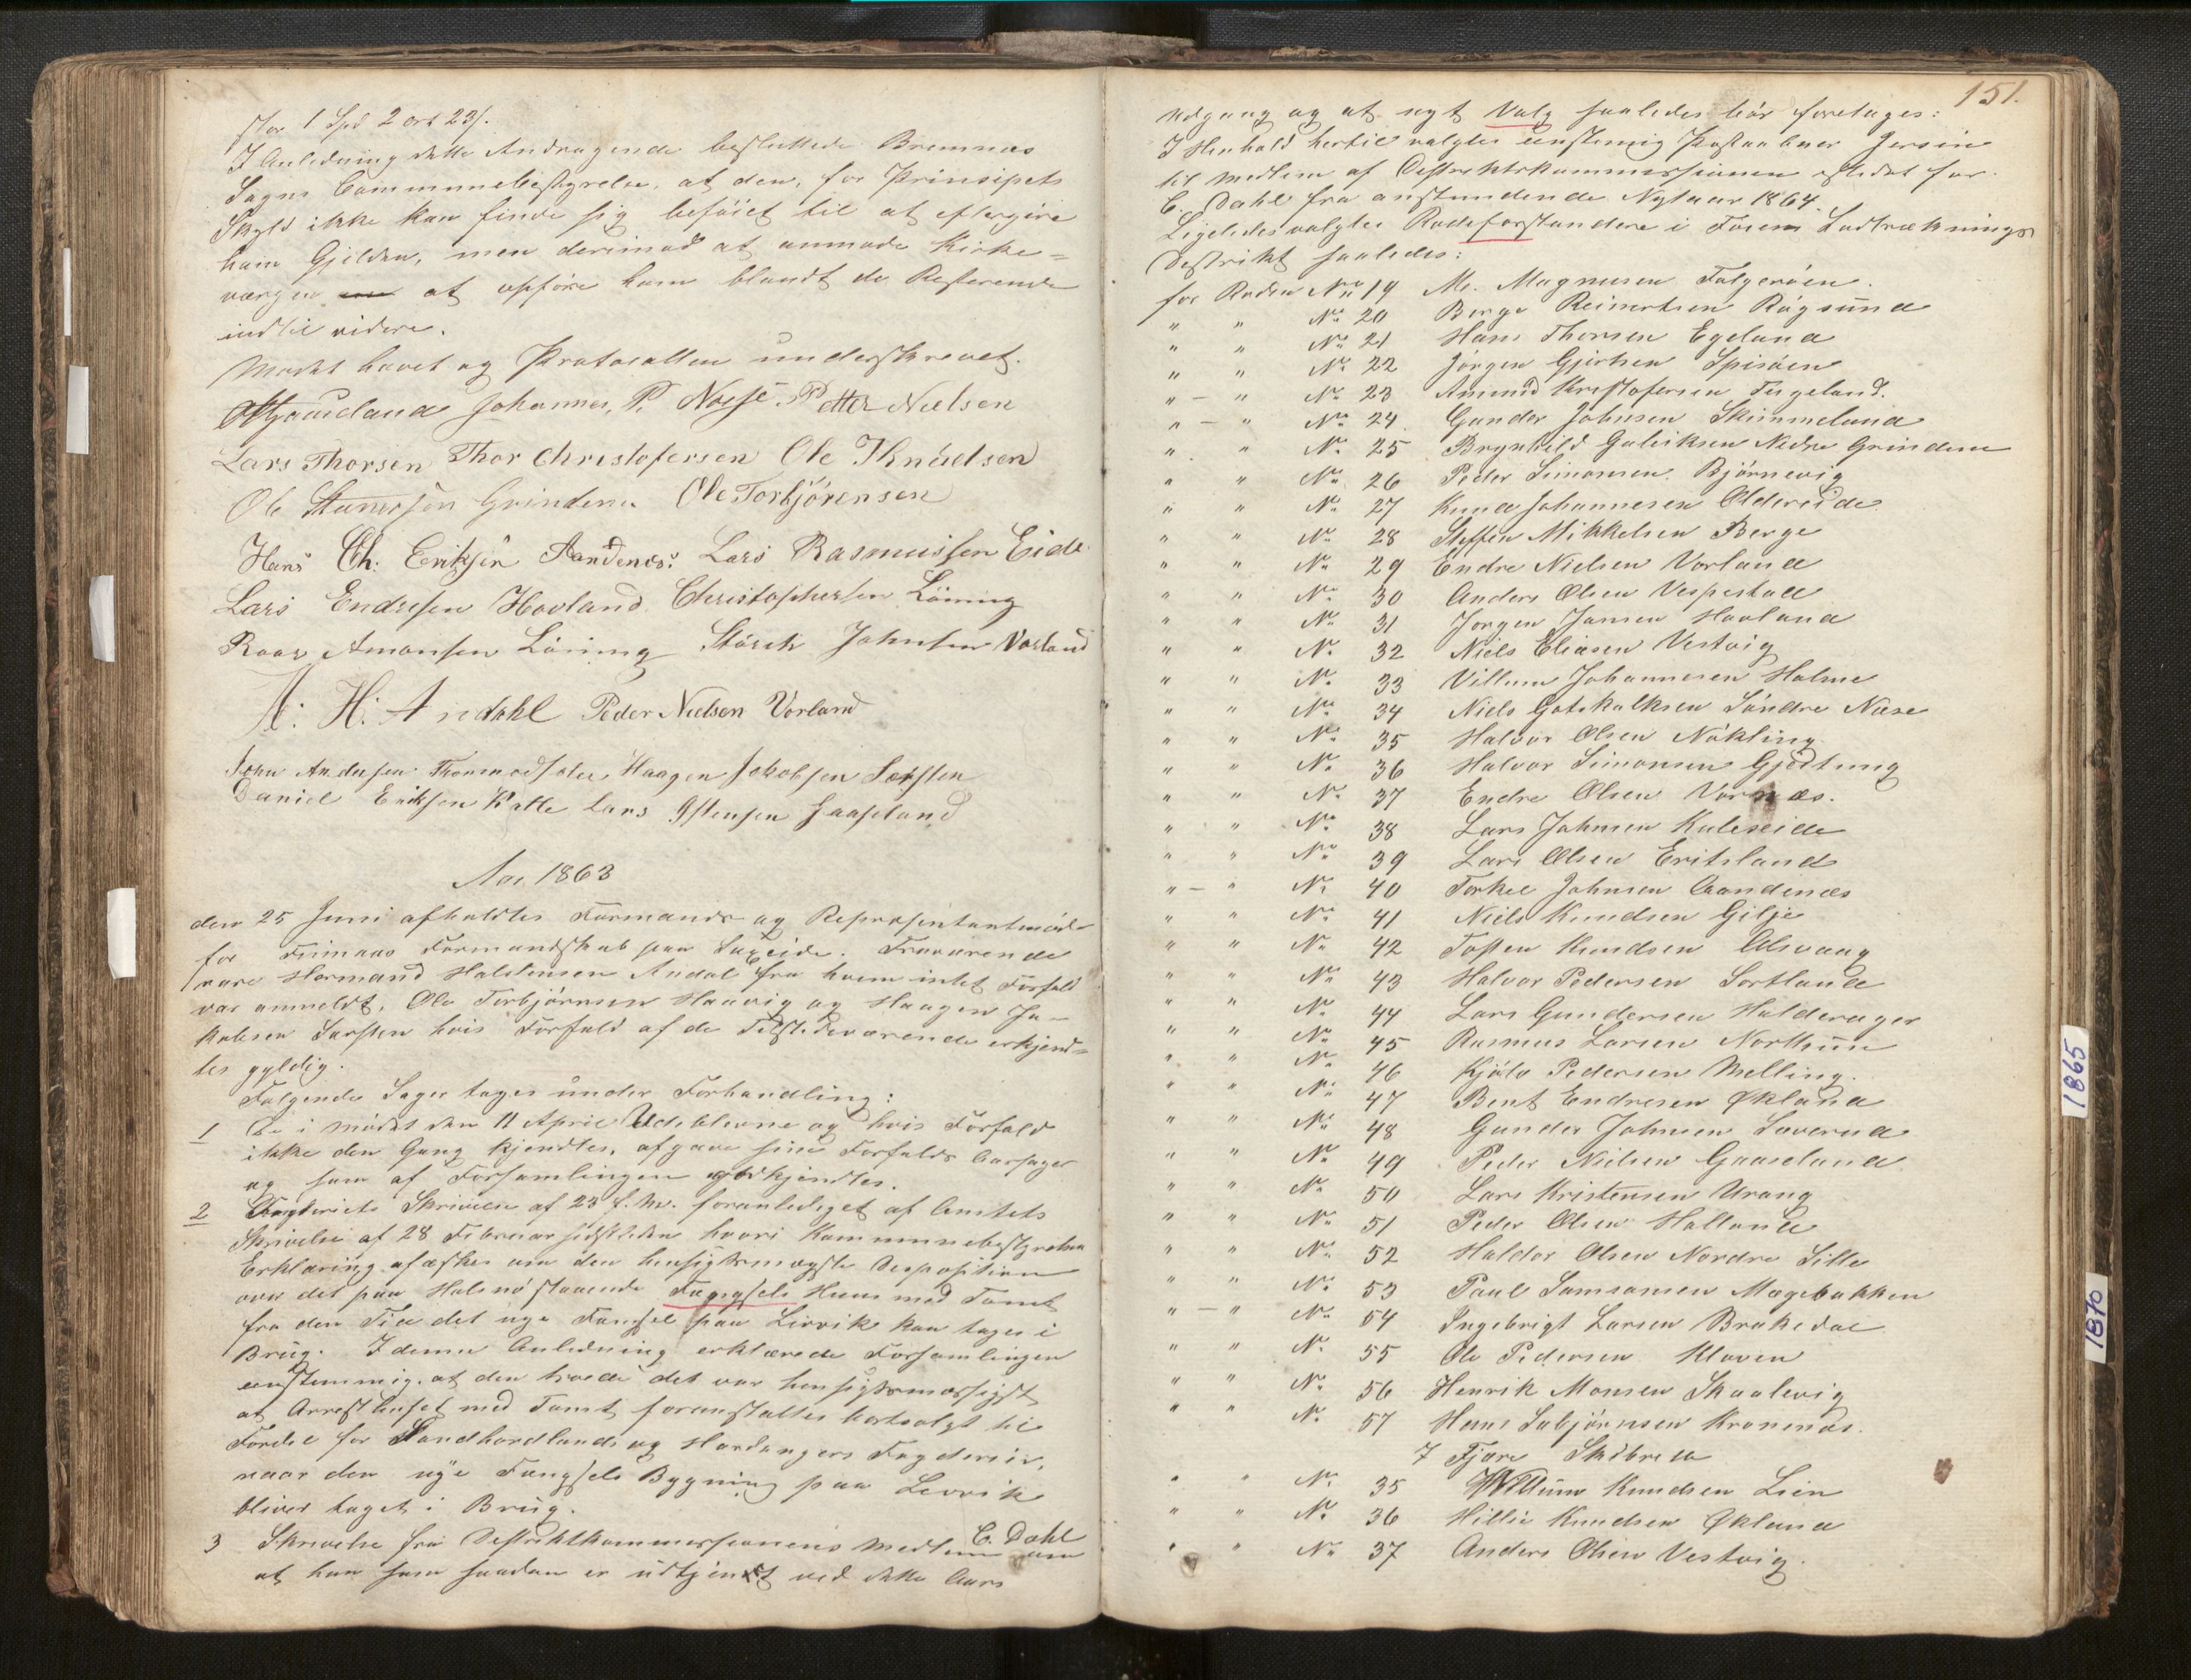 stor 1 Spd 2 ort 23 s.
I Anledning dette Andragende besluttede Bremnæs
Sogns Communebestyrelse, at den, for Prinsipets
Skyld ikke kan finde sig beføiet til at eftergive
ham Gjælden, men derimod at anmode Kirke=
værgen at opføre ham blandt de Resterende
indtil videre.
Mødet hævet og Protocollen underskrevet.
Johannes P. Næsse. Petter Nielsen
Lars Thorsen Thor Christofersen Ole Knudsen
Ole Grinden. Ole Torbjørensen
Hans Ch. Eriksen Aandenes: Lars Rasmussen Eide
Lars Endresen Hovland. Christophersen Löning
Roar Amonsen Löning Störch Johnsen Vorland
A: H: Andahl Peder Nielsen Vorland
John Andersen Haagen Jakobsen Særsten
Daniel Eriksen Katle Lars Østensen Gaaseland
Aar 1863
den 25 Juni afholdtes Formands og Repræsentantmøde
for Finnaas Formandskab paa Søreide. Fraværende
vare Hermand Halstensen Andal fra hvem intet Forfald
var anmeldt, Ole Torbjørnsen Haavig og Haagen Ja-
kobsen Særsten hvis Forfald af de Tilstedeværende erkjend=
tes gyldig.
Følgende Sager toges under Forhandling:
1 De i Mødet den 11 April Udeblevne og hvis Forfald
ikke den Gang kjendtes, afgave sine Forfalds Aarsager
og som af Forsamlingen godkjendtes.
2 Fogderiets Skrivelse af 23 f. M. foranlediget af Amtets
Skrivelse af 28 Februar sidstleden hvori Kommunebestyrelsens
Erklæring afæskes om den hensigtsmæssigste Disposition
over det paa Halsnø staaende Fængsels Huus med Tomt
fra den Tid det nye Fængsel paa Lervik kan tages i
Brug. I denne Anledning erklærede Forsamlingen
eenstemmig, at den troede det var hensigtsmæssigst
at Arresthuset med Tomt foranstaltes bortsolgt til
Fordel for Søndhordlands og Hardangers Fogderier,
naar den nye Fængsels Bygning paa Lervik
bliver taget i Brug.
3 Skrivelse fra Distriktkommissionens Medlem C. Dahl om
at han som saadan er udtjent ved dette Aars
151.
Udgang og at nyt Valg saaledes bør foretages:
I Henhold hertil valgtes eenstemmig Postaabner Jersin
til Medlem af Distriktskommissionen istedet for
C. Dahl fra anstundende Nytaar 1864.
Ligeledes valgtes Rodeforstandere i Føiens Lodtræknings
Distrikt saaledes:
for Roden No 19 M. Magnusen Folgerøen.
" " No 20 Berge Reinertsen Røgsund
" " No 21 Hans Thorsen Egeland
" " No 22 Jörgen Gjertsen Spisöen
" – " No 23 Amund Kristofersen Tergeland.
" – " No 24 Gunder Johnsen Skimmeland
" " No 25 Brynhild Guleiksen Nedre Grinden
" " No 26 Peder Simonsen Bjørnevig
" " No 27 Knud Johannesen Oldereide
" " No 28 Steffen Mikkelsen Berge
" " No 29 Endre Nielsen Vorland
" " No 30 Anders Olsen Vespestad
" " No 31 Jørgen Jansen Hovland
" " No 32 Niels Eliasen Vestvig
" " No 33 Villum Johannesen Holme
" " No 34 Niels Gotskalksen Søndre Næse
" " No 35 Halvor Olsen Nøkling
" " No 36 Halvor Simonsen Gjedtung
" " No 37 Endre Olsen Vornæs.
" " No 38 Lars Johnsen Kuleseide
" " No 39 Lars Olsen Eritsland
" – " No 40 Torkel Johnsen Aandenæs
" " No 41 Niels Knudsen Gilje
" " No 42 Tosten Knudsen Alsvaag
" " No 43 Halvor Pedersen Sortland
" " No 44 Lars Gundersen Holderager
" " No 45 Rasmus Larsen Nortuun
" " No 46 Kjølv Pedersen Melling.
" " No 47 Bent Endresen Økland
" " No 48 Gunder Johnsen Loverud
" " No 49 Peder Nielsen Gaaseland
" " No 50 Lars Kristensen Urang
" " No 51 Peder Olsen Halland
" " No 52 Haldor Olsen Nordre Lille
" " No 53 Paul Samsonsen Mogebakken
" – " No 54 Ingebrigt Larsen Brakedal
" " No 55 Ole Pedersen Kloven
" " No 56 Henrik Monsen Skaalevig
" " No 57 Hans Sebjørnsen Kronenæs.
7 Fjære Skibrede
" " No 35 Willum Knudsen Lien
" " No 36 Hillie Knudsen Økland
" " No 37 Anders Olsen Vestvig.
1865
1870